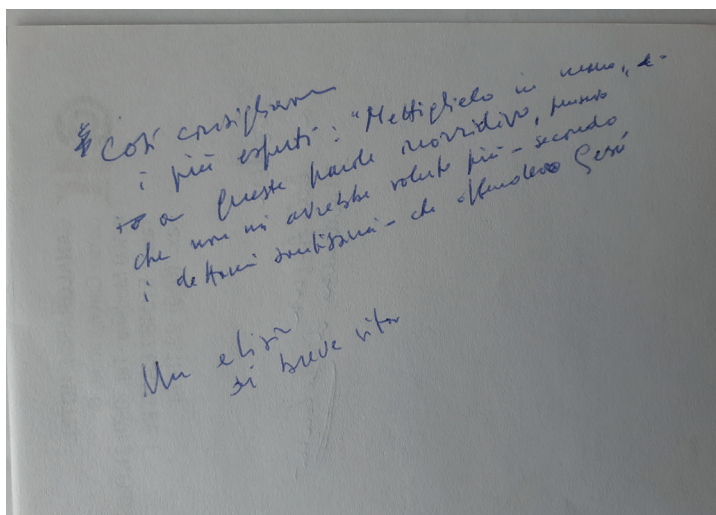 * Così consigliavano
i più esperti: "Mettiglielo in mano", e
a queste parole inorridivo, pensavo
che non mi avrebbe voluto più - secondo
i dettami santissimi - che offendevo Gesù
Un elisir
di breve vita